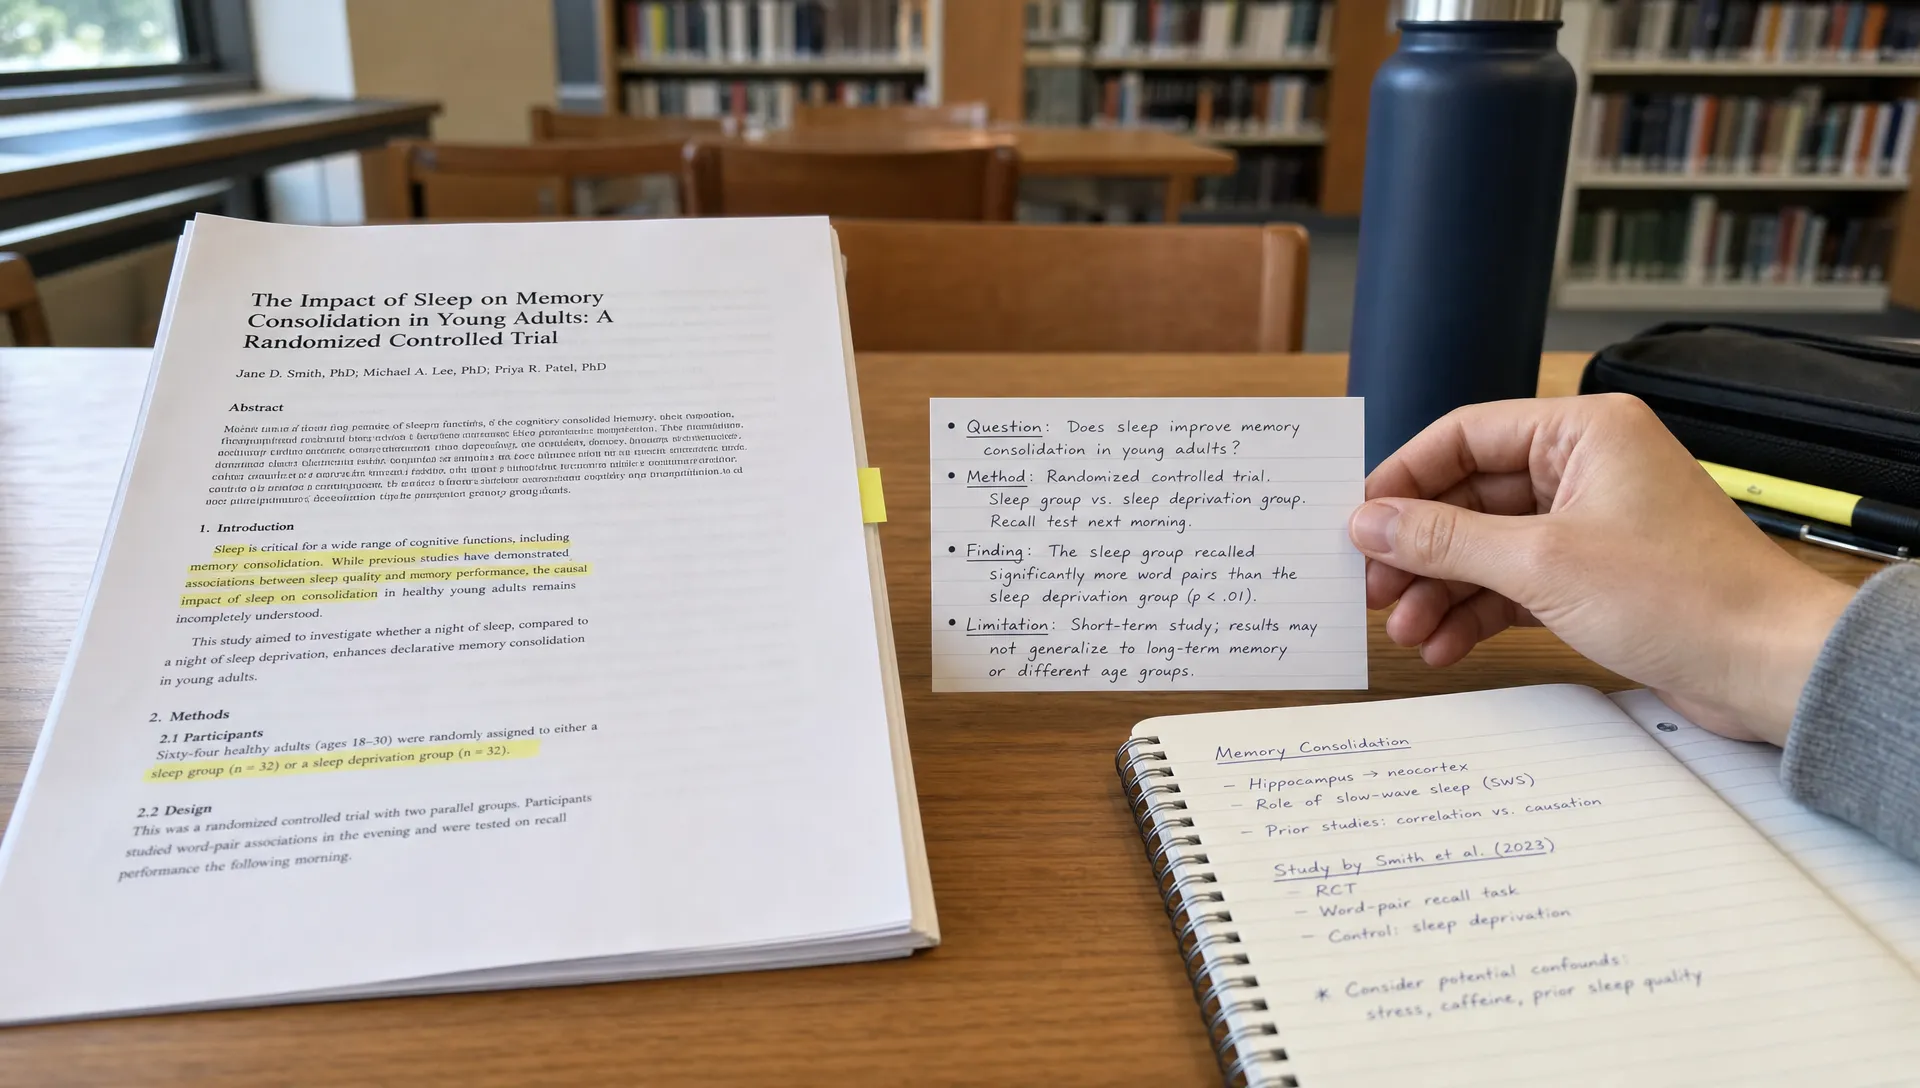 The Impact of Sleep on Memory
Consolidation in Young Adults: A
Randomized Controlled Trial
Jane D. Smith, PhD; Michael A. Lee, PhD; Priya R. Patel, PhD
Abstract
1. Introduction
Sleep is critical for a wide range of cognitive functions, including
memory consolidation. While previous studies have demonstrated
associations between sleep quality and memory performance, the causal
impact of sleep on consolidation in healthy young adults remains
incompletely understood.
This study aimed to investigate whether a night of sleep, compared to
a night of sleep deprivation, enhances declarative memory consolidation
in young adults.
2. Methods
2.1 Participants
Sixty-four healthy adults (ages 18–30) were randomly assigned to either a
sleep group (n = 32) or a sleep deprivation group (n = 32).
2.2 Design
This was a randomized controlled trial with two parallel groups. Participants
studied word-pair associations in the evening and were tested on recall
performance the following morning.
• Question: Does sleep improve memory
consolidation in young adults?
• Method: Randomized controlled trial.
Sleep group vs. sleep deprivation group.
Recall test next morning.
• Finding: The sleep group recalled
significantly more word pairs than the
sleep deprivation group (p < .01).
• Limitation: Short-term study; results may
not generalize to long-term memory
or different age groups.
Memory Consolidation
– Hippocampus → neocortex
– Role of slow-wave sleep (SWS)
– Prior studies: correlation vs. causation
Study by Smith et al. (2023)
– RCT
– Word-pair recall task
– Control: sleep deprivation
* Consider potential confounds:
stress, caffeine, prior sleep quality